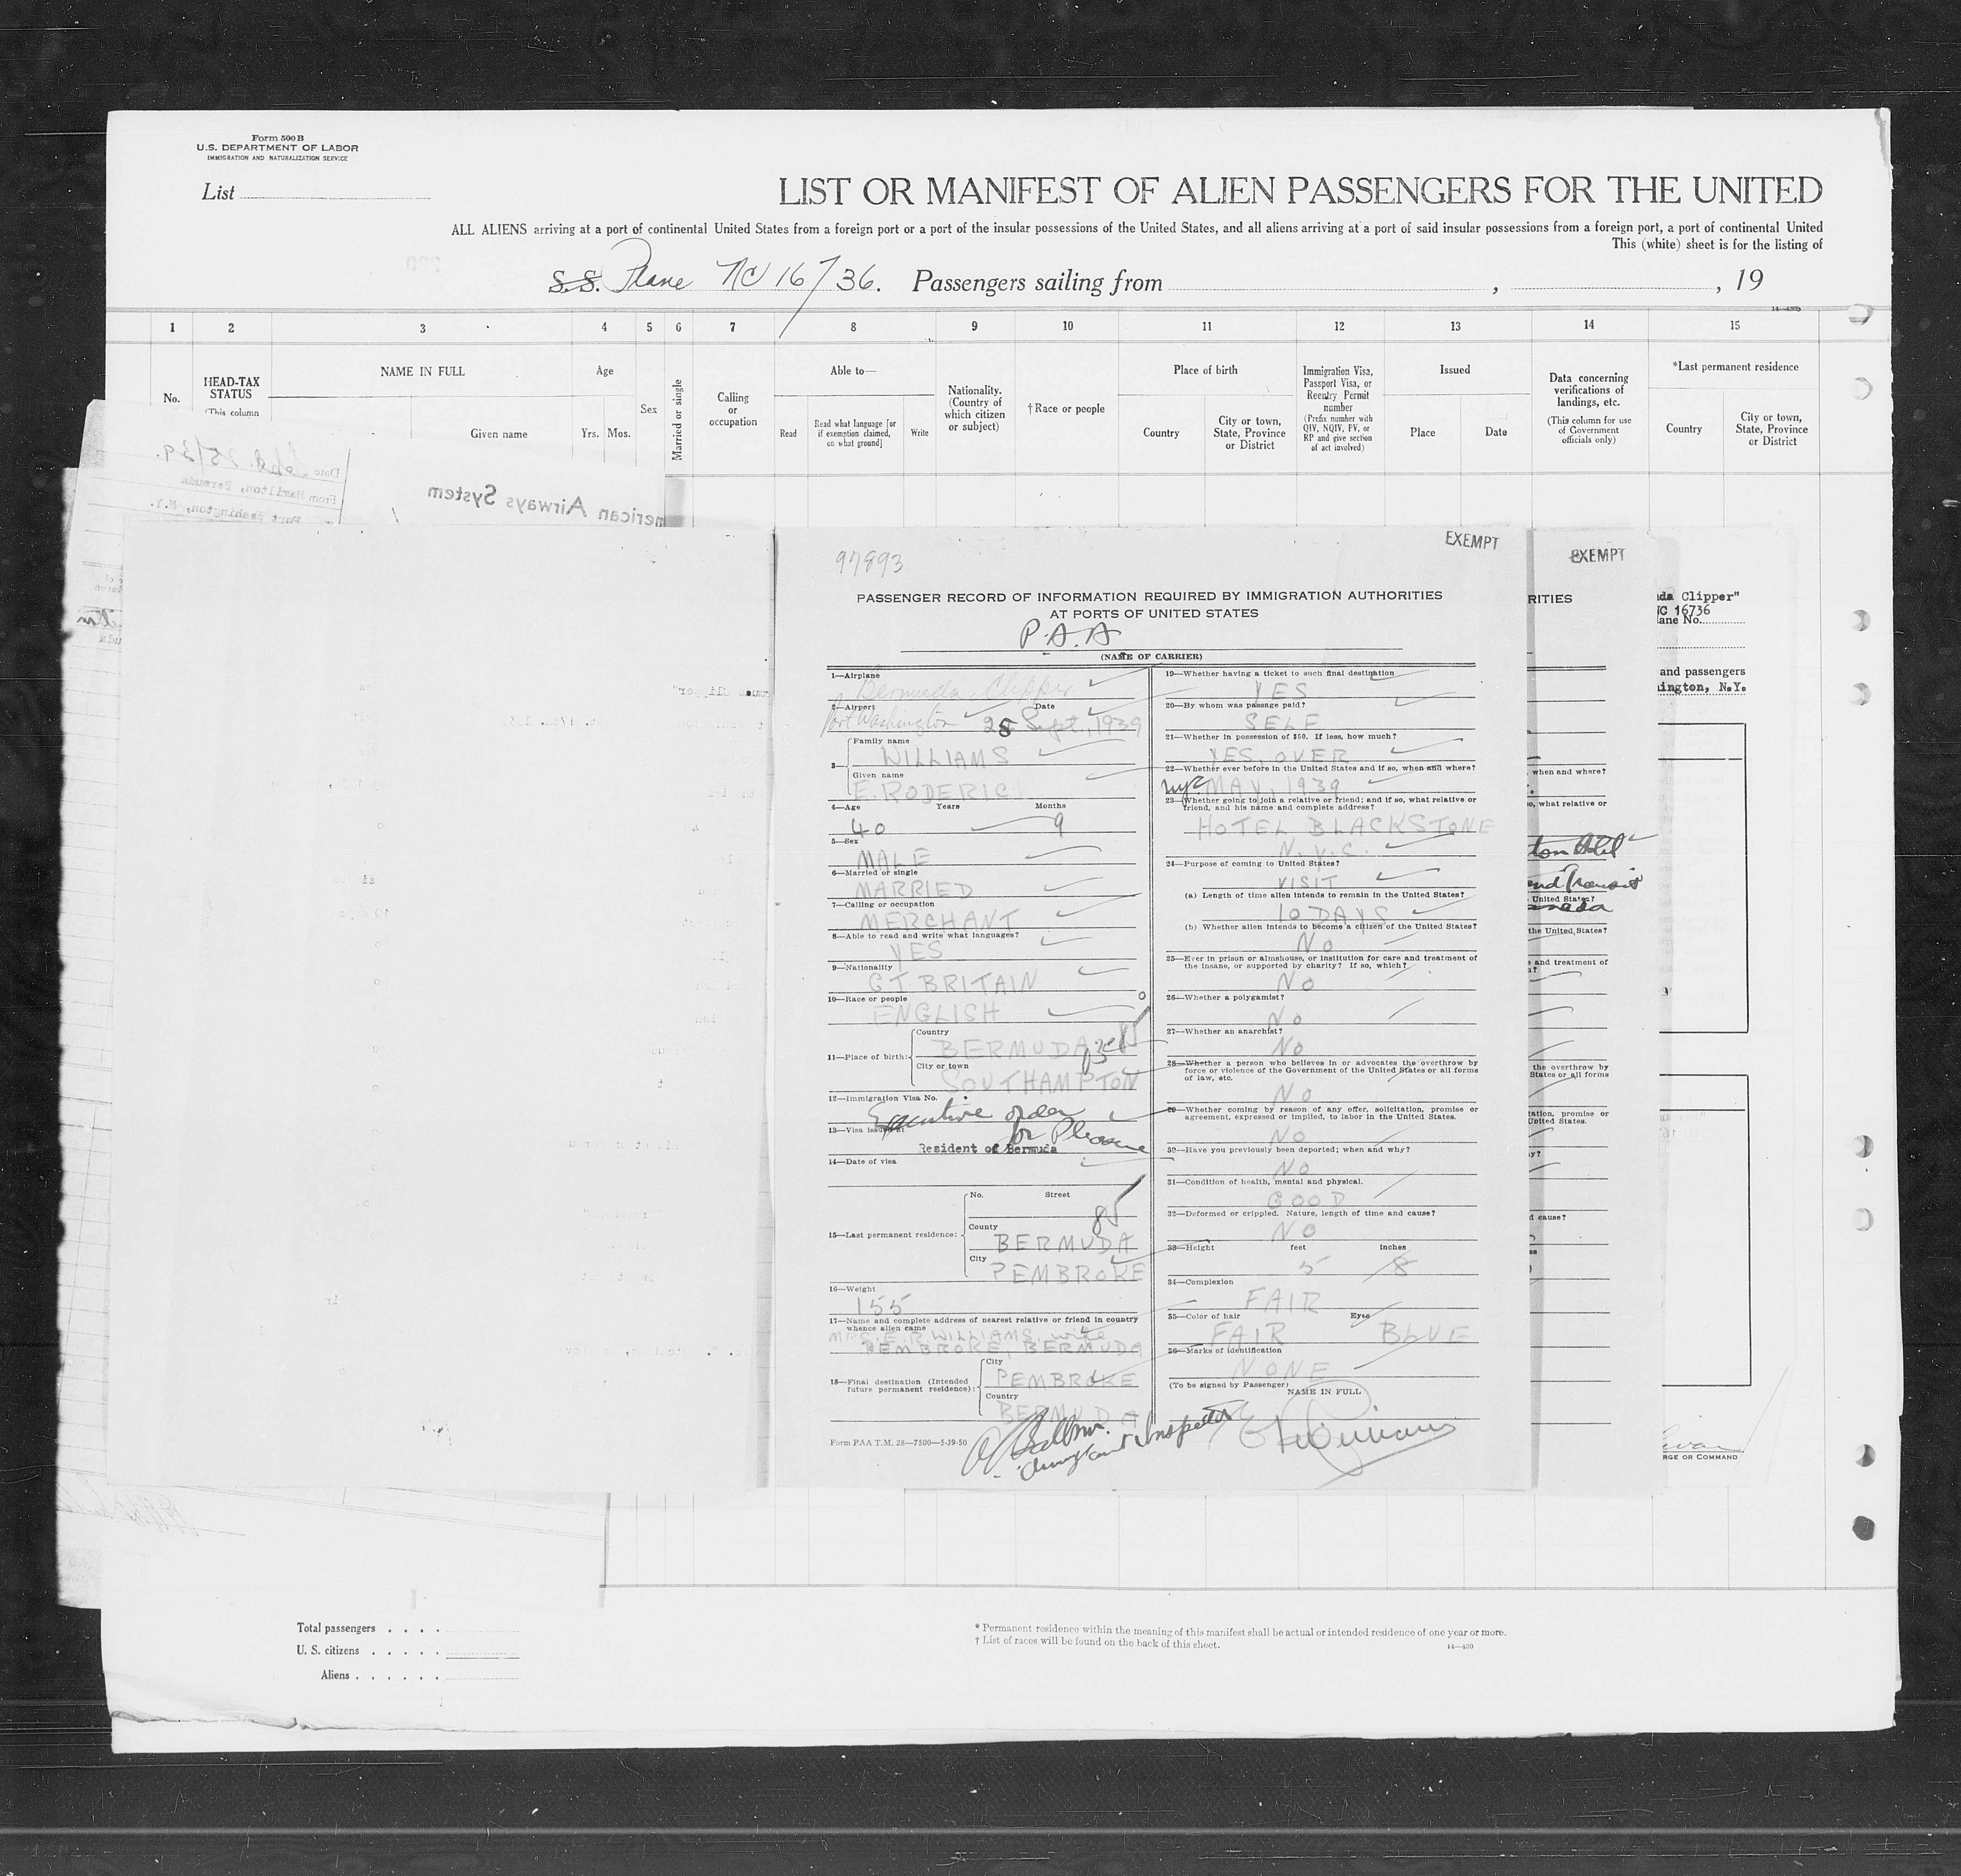 Form 500 B
U.S. DEPARTMENT OF LABOR
IMMIGRATION AND NATURALIZATION SERVICE
List
LIST OR MANIFEST OF ALIEN PASSENGERS FOR THE UNITED
ALL ALIENS arriving at a port of continental United States from a foreign port or a port of the insular possessions of the United States, and all aliens arriving at a port of said insular possessions from a foreign port, a port of continental United
This (white) sheet is for the listing of
S.S. Plane NC 16736. Passengers sailing from , , 19
1 2 3 4 5 6 7 8 9 10 11 12 13 14 15
No.
HEAD-TAX STATUS
(This column
NAME IN FULL
Given name
Age
Yrs. Mos.
Sex
Married or single
Calling or occupation
Able to—
Read
Read what language [or if exemption claimed, on what ground]
Write
Nationality. (Country of which citizen or subject)
†Race or people
Place of birth
Country
City or town, State, Province or District
Immigration Visa, Passport Visa, or Reentry Permit number
(Prefix number with QIV, NQIV, PV, or RP and give section of act involved)
Issued
Place
Date
Data concerning verifications of landings, etc.
(This column for use of Government officials only)
*Last permanent residence
Country
City or town, State, Province or District
Date Sept. 25/39.
From Hamilton, Bermuda
Port Washington, N.Y.
merican Airways System
97893
EXEMPT
PASSENGER RECORD OF INFORMATION REQUIRED BY IMMIGRATION AUTHORITIES
AT PORTS OF UNITED STATES
P.A.A
(NAME OF CARRIER)
1—Airplane
Bermuda Clipper
2—Airport Date
Port Washington 25 Sept., 1939
3—
Family name
WILLIAMS
Given name
E. RODERIC
4—Age Years Months
40 9
5—Sex
MALE
6—Married or single
MARRIED
7—Calling or occupation
MERCHANT
8—Able to read and write what languages?
YES
9—Nationality
GT BRITAIN
10—Race or people
ENGLISH
11—Place of birth:
Country
BERMUDA
City or town
SOUTHAMPTON
12—Immigration Visa No.
Executive order
13—Visa issued at
for Pleasure
Resident of Bermuda
14—Date of visa
15—Last permanent residence:
No. Street
85
County
BERMUDA
City
PEMBROKE
16—Weight
155
17—Name and complete address of nearest relative or friend in country whence alien came
MRS. E. R. WILLIAMS, wife
PEMBROKE, BERMUDA
18—Final destination (Intended future permanent residence):
City
PEMBROKE
Country
BERMUDA
Form PAA T.M. 28—7500—5-39-50
19—Whether having a ticket to such final destination
YES
20—By whom was passage paid?
SELF
21—Whether in possession of $50. If less, how much?
YES, OVER
22—Whether ever before in the United States and if so, when and where?
NYC MAY, 1939
23—Whether going to join a relative or friend; and if so, what relative or friend, and his name and complete address?
HOTEL BLACKSTONE
N.Y.C.
24—Purpose of coming to United States?
VISIT
(a) Length of time alien intends to remain in the United States?
10 DAYS
(b) Whether alien intends to become a citizen of the United States?
NO
25—Ever in prison or almshouse, or institution for care and treatment of the insane, or supported by charity? If so, which?
NO
26—Whether a polygamist?
NO
27—Whether an anarchist?
NO
28—Whether a person who believes in or advocates the overthrow by force or violence of the Government of the United States or all forms of law, etc.
NO
29—Whether coming by reason of any offer, solicitation, promise or agreement, expressed or implied, to labor in the United States.
NO
30—Have you previously been deported; when and why?
NO
31—Condition of health, mental and physical.
GOOD
32—Deformed or crippled. Nature, length of time and cause?
NO
33—Height feet inches
5 8
34—Complexion
FAIR
35—Color of hair Eyes
FAIR BLUE
36—Marks of identification
NONE
(To be signed by Passenger)
NAME IN FULL
E R Williams
Immigrant Inspector
EXEMPT
RITIES
when and where?
so, what relative or
United States?
the United States?
and treatment of
the overthrow by
States or all forms
tation, promise or
United States.
d cause?
uda Clipper"
NC 16736
lane No.
and passengers
hington, N.Y.
RGE OR COMMAND
Total passengers . . . .
U. S. citizens . . . . .
Aliens . . . . . .
* Permanent residence within the meaning of this manifest shall be actual or intended residence of one year or more.
† List of races will be found on the back of this sheet.
14—430